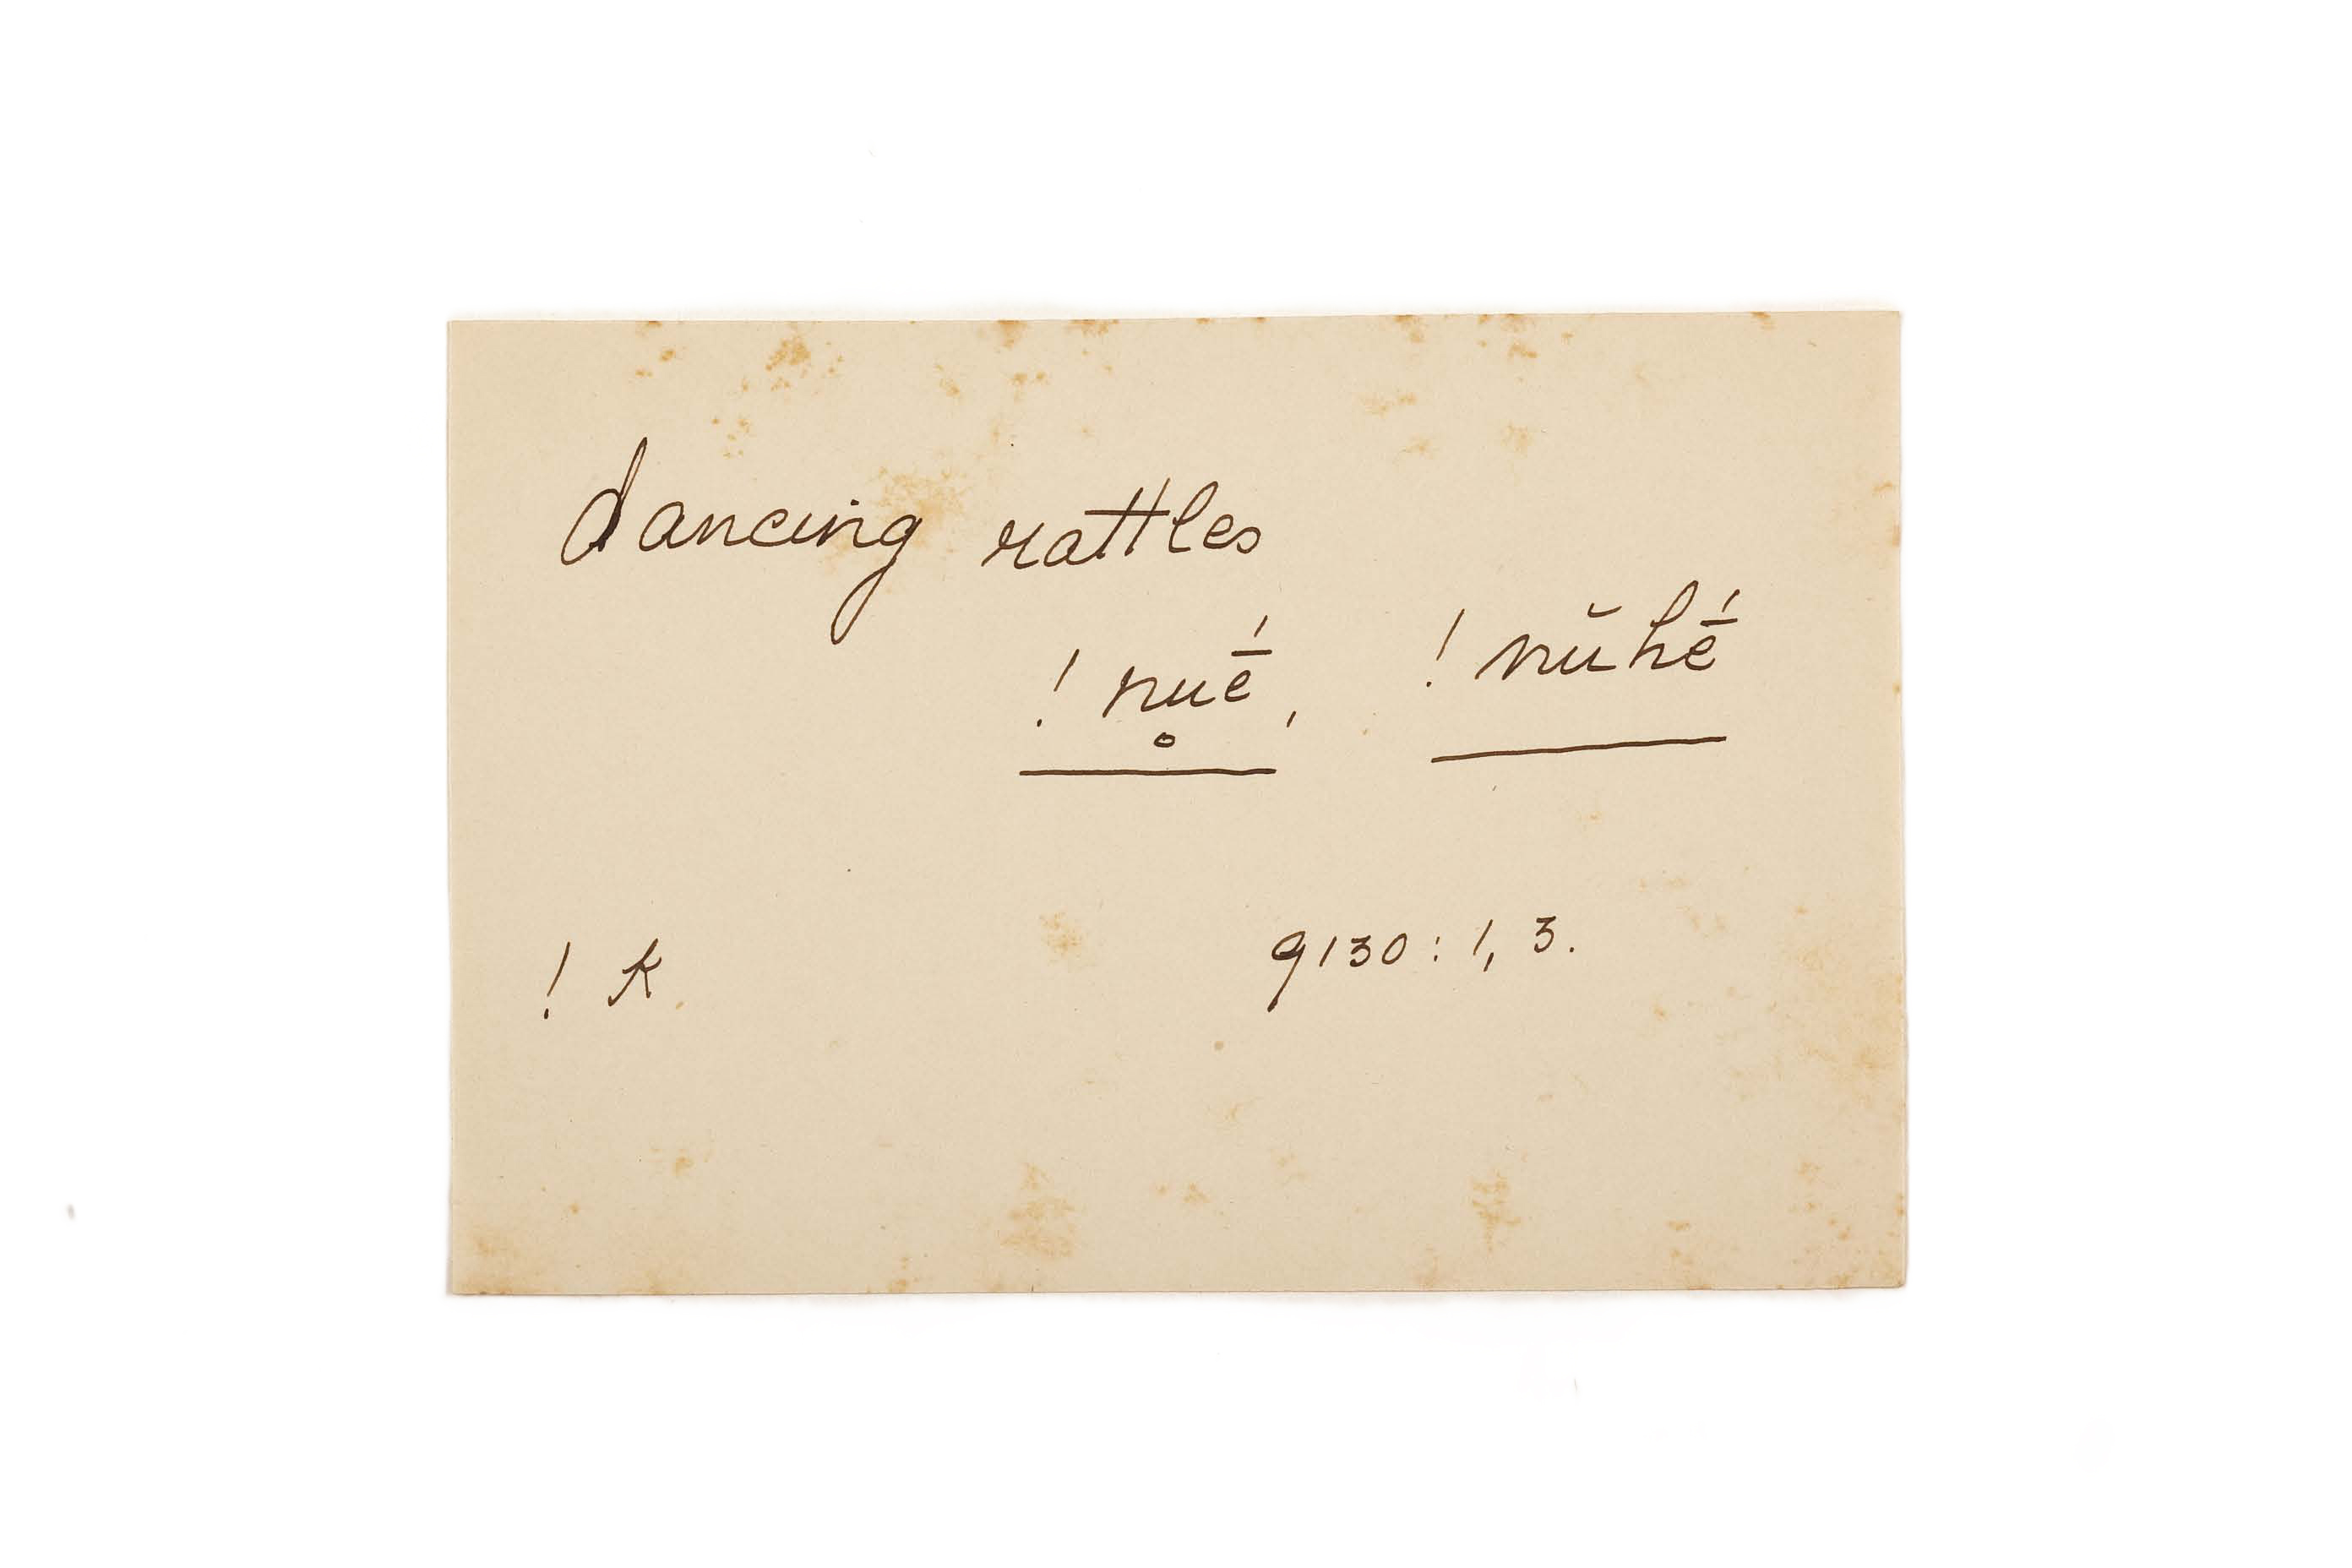 dancing rattles
! nu̥ḗ, ! nŭhḗ
! K. 9130 : 1, 3.